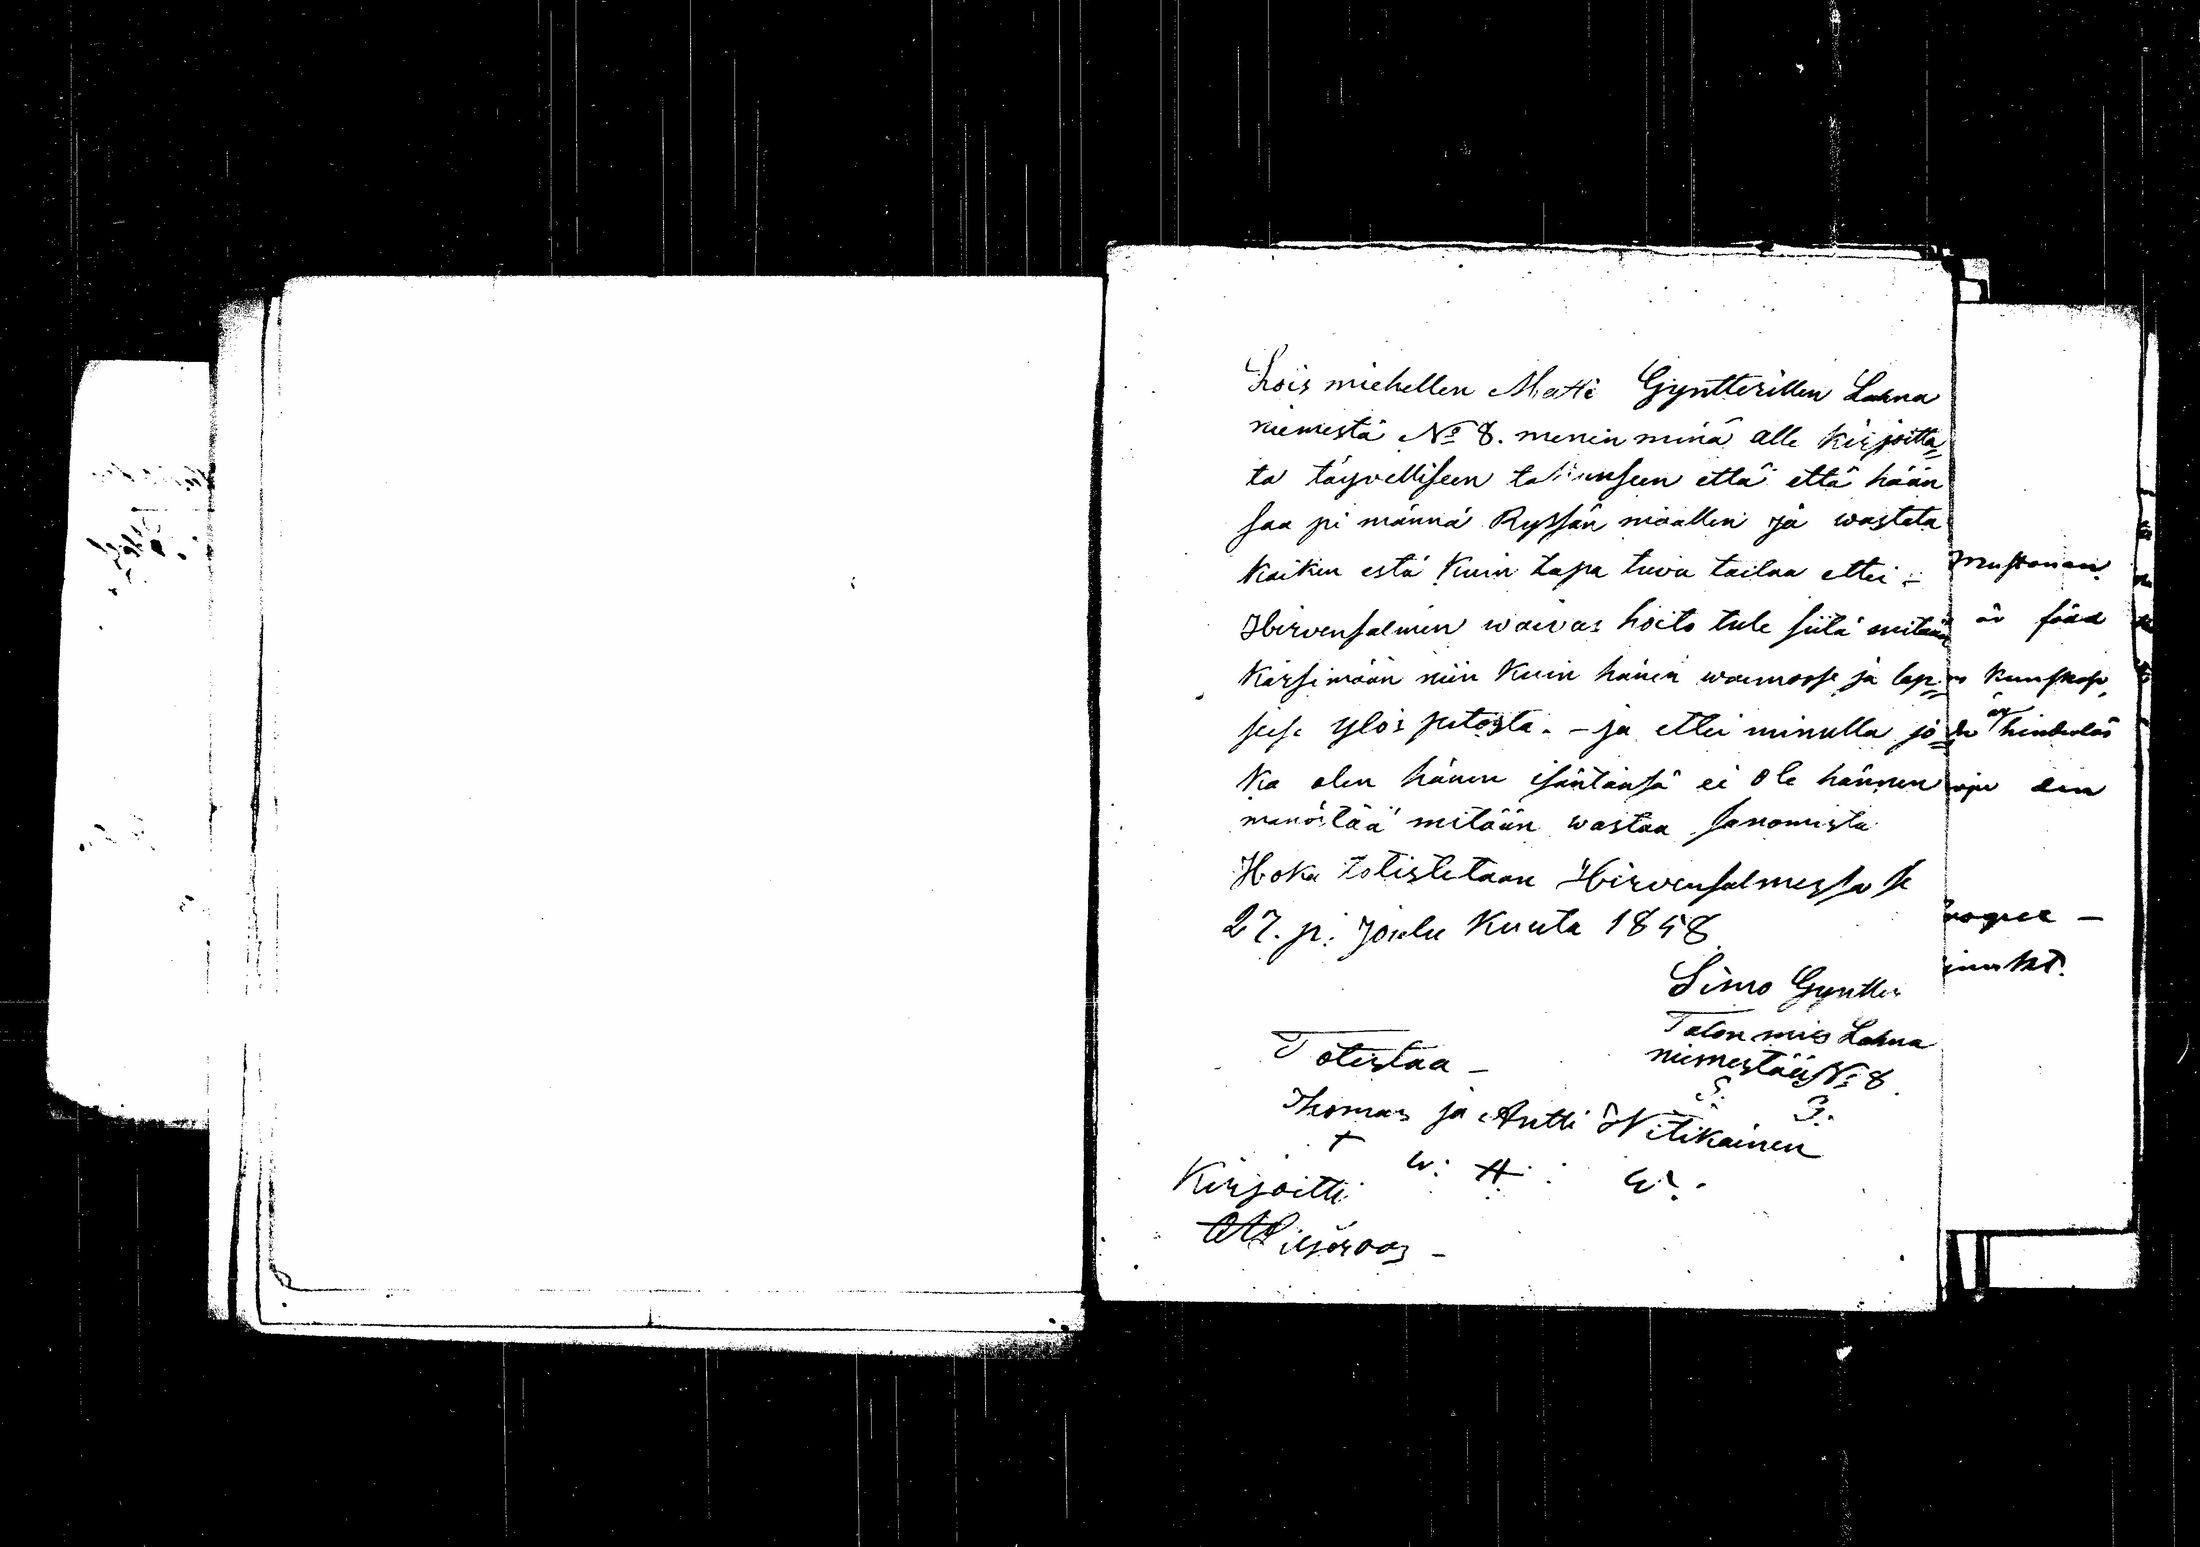 Lois miehellen Matti Gyntterillen Lahna
niemestä No 8. menin minä alle kirjoitta=
ta täyvelliseen takaukseen että että hään
saa pi männä Ryssän maallen ja wastata
kaiken estä kuin tapa tuva tailaa ettei -
Hirvensalmen waivas hoito tule siitä mitään
kärsimään niin kuin hänen waimosse ja lap=
seise ylös pitosta. - ja ettei minulla jo=
ka olen hänen isäntänsä ei ole hännen
menöstää mitään wastaa sanomista
Hoka totistetaan Hirvensalmessa se
27. p: Joulu kuuta 1858
Simo Gyntter
Talon mies Lahna
niemestää No 8.
S. G.
Totistaa -
Thomas ja Antti Witikainen
+ W: A: W:
Kirjoitti
Mustonen
är född
kunskap
hinderlös
den